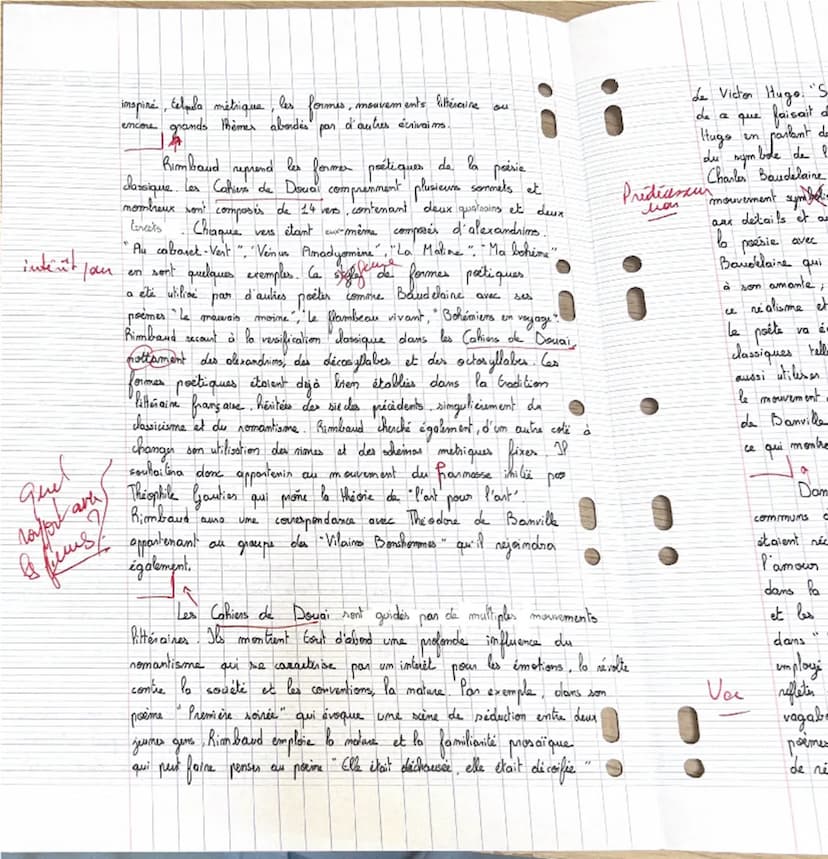 inspiré, tel la métrique, les formes, mouvements littéraire ou
encore grands thèmes abordés par d'autres écrivains.
Rimbaud reprend les formes poétiques de la poésie
classique. Les Cahiers de Douai comprennent plusieurs sonnets et
nombreux sont composés de 14 vers, contenant deux quatrains et deux
tercets. Chaque vers étant eux-même composés d'alexandrins.
"Au cabaret-Vert", "Vénus Anadyomène", "La Maline", "Ma bohème"
intérêt / au
en sont quelques exemples. Ce genre de formes poétiques
a été utilisé par d'autres poètes comme Baudelaire avec ses
poèmes "Le mauvais moine", "Le flambeau vivant", "Bohémiens en voyage".
Rimbaud recourt à la versification classique dans les Cahiers de Douai,
nottament des alexandrins, des décasyllabes et des octosyllabes. Ces
formes poétiques étaient déjà bien établies dans la tradition
littéraire française, héritées des siècles précédents, singulièrement du
classicisme et du romantisme. Rimbaud cherche également, d'un autre coté à
changer son utilisation des rimes et des schémas métriques fixes. Il
souhaitera donc appartenir au mouvement du Parnasse initié par
Théophile Gautier qui prône la théorie de "l'art pour l'art".
Rimbaud aura une correspondance avec Théodore de Banville
appartenant au groupe des "Vilains Bonshommes" qu'il rejoindra
également.
Quel
rapport avec
les
Les Cahiers de Douai sont guidés par de multiples mouvements
littéraires. Ils montrent tout d'abord une profonde influence du
romantisme qui se caractérise par un intérêt pour les émotions, la révolte
contre la société et les conventions, la nature. Par exemple, dans son
poème "Première soirée" qui évoque une scène de séduction entre deux
jeunes gens, Rimbaud emploie la nature et la familiarité prosaïque
qui peut faire penser au poème "Elle était déchaussée, elle était décoiffée"
de Victor Hugo. "S
de ce que faisait d
Hugo en parlant d
du symbole de l
Charles Baudelaire
Prédécesseur
mouvement
aux détails et a
la poésie avec
Baudelaire qui
à son amante,
ce réalisme et
Le poète va é
classiques tell
aussi utiliser
le mouvement
de Banville
ce qui montre
Dan
communs
étaient réc
l'amour
dans la
et les
dans "
employé
Voc
refléter
vagab
poèmes
de ré